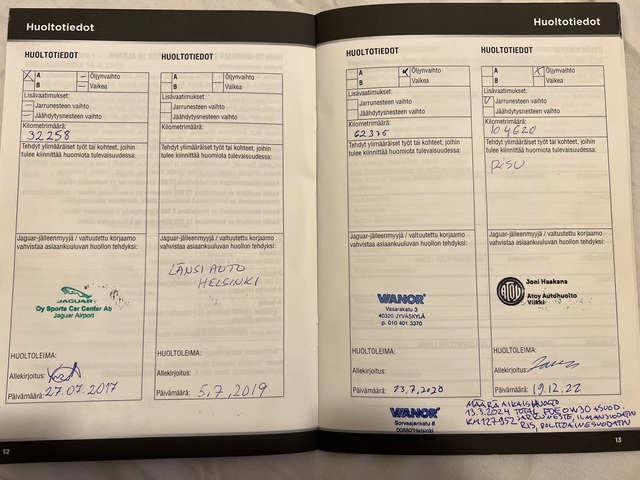 Huoltotiedot
HUOLTOTIEDOT
X A — Öljynvaihto
B — Vaikea
Lisävaatimukset:
— Jarrunesteen vaihto
— Jäähdytysnesteen vaihto
Kilometrimäärä:
32 258
Tehdyt ylimääräiset työt tai kohteet, joihin
tulee kiinnittää huomiota tulevaisuudessa:
Jaguar-jälleenmyyjä / valtuutettu korjaamo
vahvistaa asiaankuuluvan huollon tehdyksi
JAGUAR
Oy Sports Car Center Ab
Jaguar Airport
HUOLTOLEIMA:
Allekirjoitus:
Päivämäärä: 27.07.2017
12
HUOLTOTIEDOT
A Öljynvaihto
B Vaikea
Lisävaatimukset:
Jarrunesteen vaihto
Jäähdytysnesteen vaihto
Kilometrimäärä:
Tehdyt ylimääräiset työt tai kohteet, joihin
tulee kiinnittää huomiota tulevaisuudessa:
Jaguar-jälleenmyyjä / valtuutettu korjaamo
vahvistaa asiaankuuluvan huollon tehdyksi
LÄNSI AUTO
HELSINKI
HUOLTOLEIMA:
Allekirjoitus:
Päivämäärä: 5.7.2019
Huoltotiedot
HUOLTOTIEDOT
A Öljynvaihto
B Vaikea
Lisävaatimukset:
Jarrunesteen vaihto
Jäähdytysnesteen vaihto
Kilometrimäärä:
62375
Tehdyt ylimääräiset työt tai kohteet, joihin
tulee kiinnittää huomiota tulevaisuudessa:
Jaguar-jälleenmyyjä / valtuutettu korjaamo
vahvistaa asiaankuuluvan huollon tehdyksi:
WANOR
Vasarakatu 3
40320 JYVÄSKYLÄ
p. 010 401 3370
HUOLTOLEIMA:
Allekirjoitus:
Päivämäärä: 13.7.2020
WANOR
Sorvaajankatu 6
00880 Helsinki
HUOLTOTIEDOT
A X Öljynvaihto
B Vaikea
Lisävaatimukset:
V Jarrunesteen vaihto
Jäähdytysnesteen vaihto
Kilometrimäärä:
104620
Tehdyt ylimääräiset työt tai kohteet, joihin
tulee kiinnittää huomiota tulevaisuudessa:
RISU
Jaguar-jälleenmyyjä / valtuutettu korjaamo
vahvistaa asiaankuuluvan huollon tehdyksi:
ATOY
Joni Haakana
Atoy Autohuolto
Viikki
HUOLTOLEIMA:
Allekirjoitus:
Päivämäärä: 19.12.22
MÄÄRÄAIKAISHUOLTO
13.3.2024 TOTAL FDE 0W30 +SUOD.
KM 127952 JARRUNESTE, ILMANSUODATIN
RIS, POLTTOAINESUODATIN
13